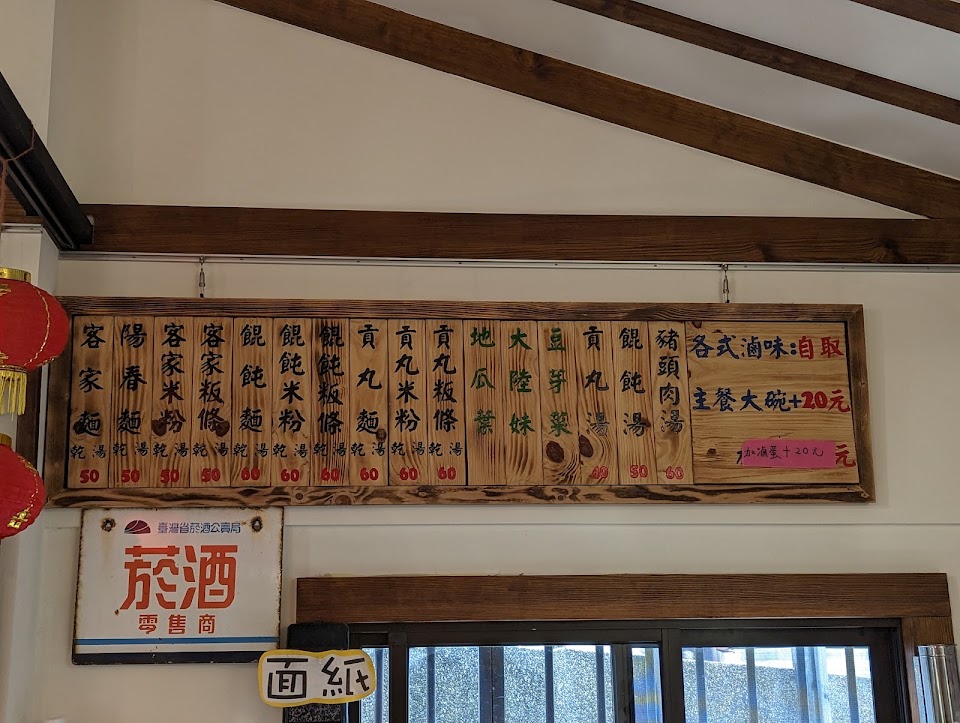 客家麵 乾 湯 50
陽春麵 乾 湯 50
客家米粉 乾 湯 50
客家粄條 乾 湯 50
餛飩麵 乾 湯 60
餛飩米粉 乾 湯 60
餛飩粄條 乾 湯 60
貢丸麵 乾 湯 60
貢丸米粉 乾 湯 60
貢丸粄條 乾 湯 60
地瓜葉
大陸妹
豆芽菜
貢丸湯 40
餛飩湯 50
豬頭肉湯 60
各式滷味:自取
主餐大碗+20元
加滷蛋+20元
元
臺灣省菸酒公賣局
菸酒
零售商
面紙